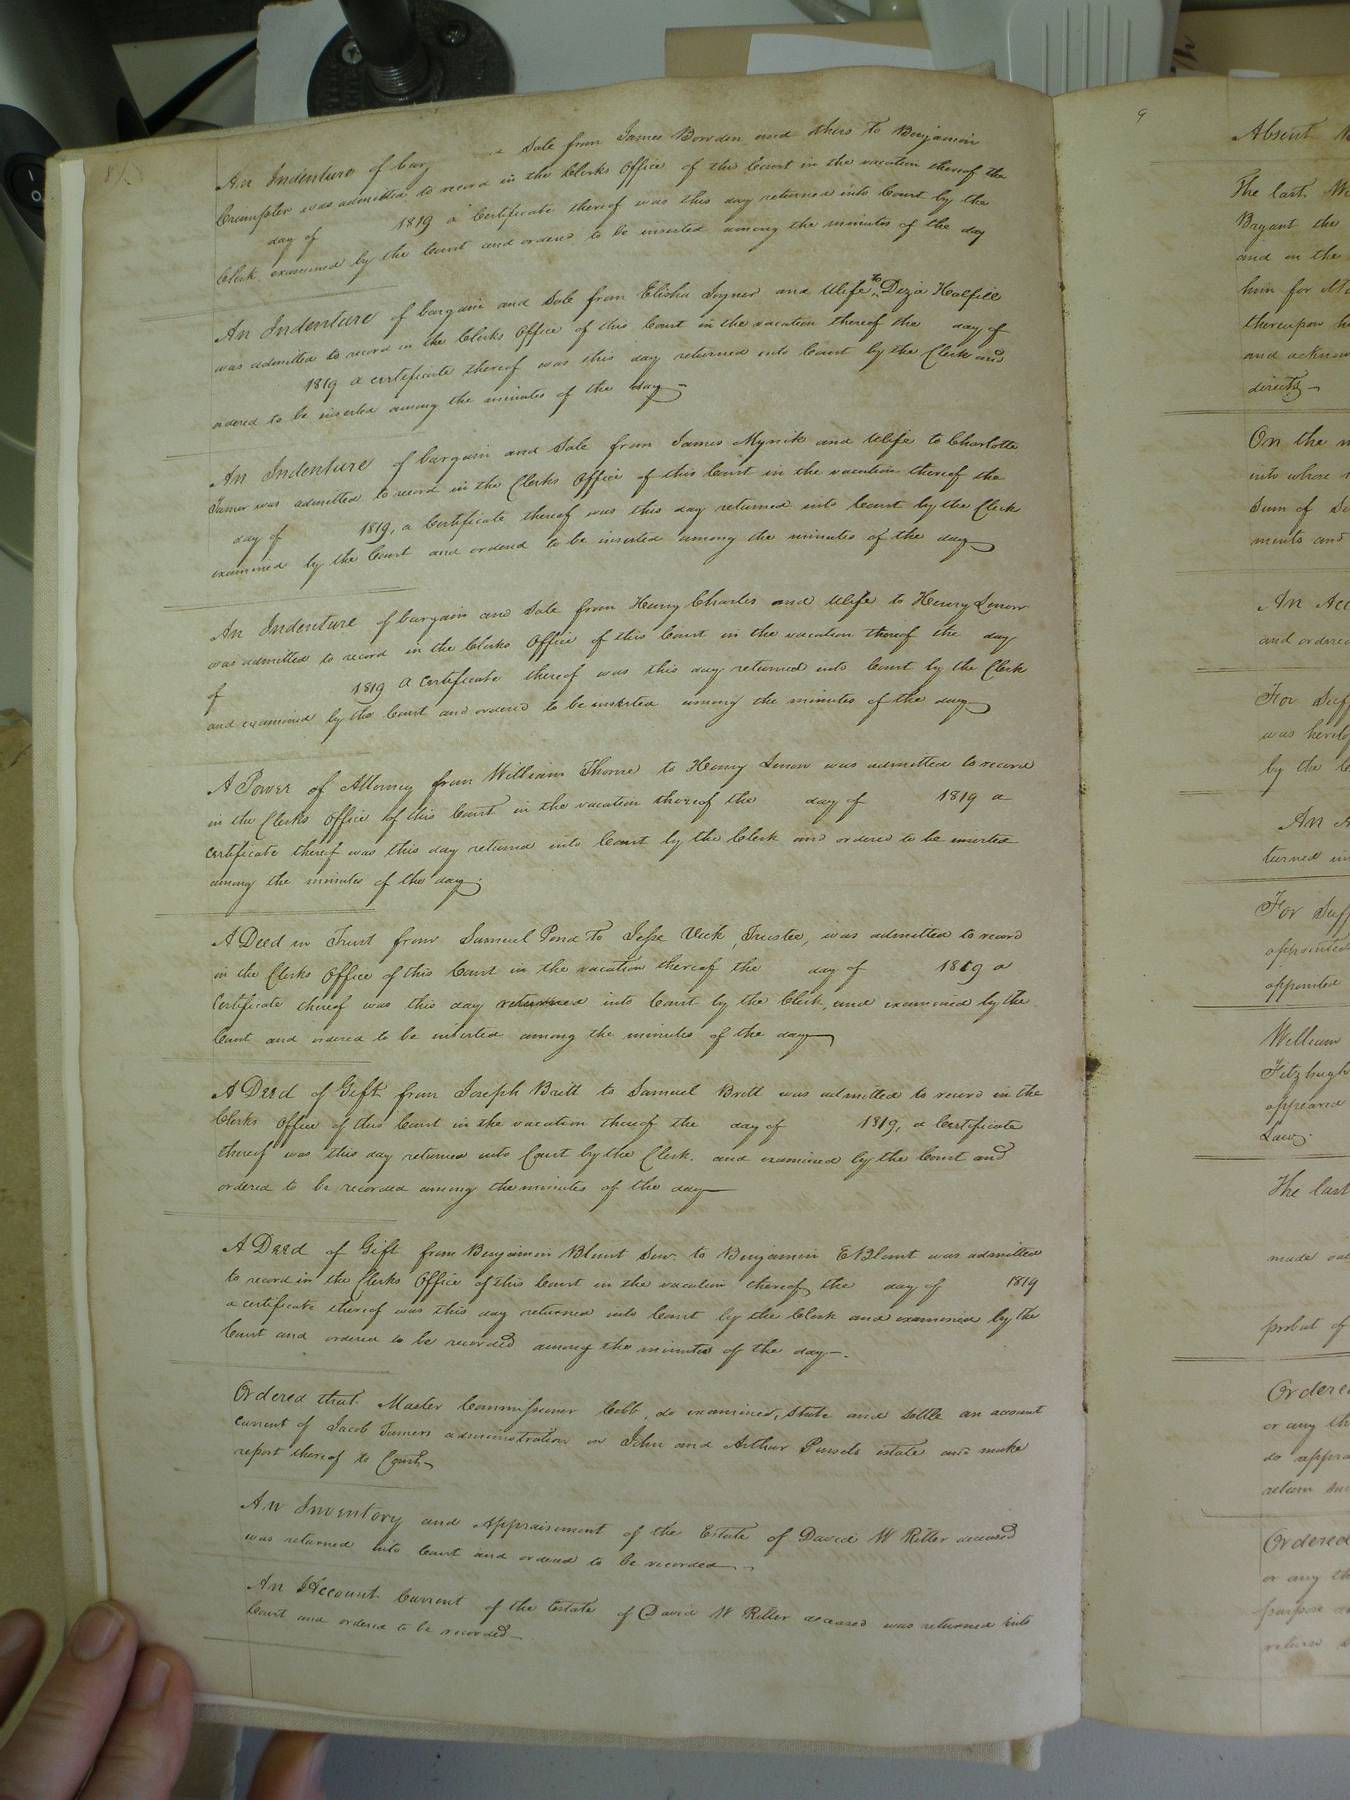 An Indenture of barg Sale from James Bowden and others to Benjamin
Crumpler was admitted to record in the Clerks Office of the Court in the vacation thereof the
day of 1819 a Certificate thereof was this day returned into Court by the
Clerk examined by the Court and ordered to be inserted among the minutes of the day
An Indenture of bargain and Sale from Elisha Joyner and Wife to Diza Halfill
was admitted to record in the Clerks Office of this Court in the vacation thereof the day of
1819 a certificate thereof was this day returned into Court by the Clerk and
ordered to be inserted among the minutes of the day
An Indenture of bargain and Sale from James Myrick and Wife to Charlotte
Turner was admitted to record in the Clerks Office of this Court in the vacation thereof the
day of 1819, a Certificate thereof was this day returned into Court by the Clerk
examined by the Court and ordered to be inserted among the minutes of the day
An Indenture of bargain and Sale from Henry Charles and Wife to Henry Lenow
was admitted to record in the Clerks Office of this Court in the vacation thereof the day
of 1819 a certificate thereof was this day returned into Court by the Clerk
and examined by the Court and ordered to be inserted among the minutes of the day
A Power of Attorney from William Thorne to Henry Lenow was admitted to record
in the Clerks Office of this Court in the vacation thereof the day of 1819 a
certificate thereof was this day returned into Court by the Clerk and ordered to be inserted
among the minutes of the day.
A Deed in Trust from Samuel Pond to Jesse Vick, Trustee, was admitted to record
in the Clerks Office of this Court in the vacation thereof the day of 1819 a
Certificate thereof was this day returned into Court by the Clerk, and examined by the
Court and ordered to be inserted among the minutes of the day
A Deed of Gift from Joseph Britt to Samuel Britt was admitted to record in the
Clerks Office of this Court in the vacation thereof the day of 1819, a Certificate
thereof was this day returned into Court by the Clerk. and examined by the Court and
ordered to be recorded among the minutes of the day
A Deed of Gift from Benjamin Blunt Senr. to Benjamin E Blunt was admitted
to record in the Clerks Office of this Court in the vacation thereof the day of 1819
a certificate thereof was this day returned into Court by the Clerk and examined by the
Court and ordered to be recorded among the minutes of the day.
Ordered that Master Commissioner Cobb, do examined, State and Settle an account
current of Jacob Turners administration on John and Arthur estate and make
report thereof to Court
An Inventory and Appraisement of the Estate of David W Ritter deceased
was returned into Court and ordered to be recorded
An Account Current of the Estate of David W Ritter deceased was returned into
Court and ordered to be recorded
9
Absent
The last
Bryant the
and on the
him for
thereupon
and
directs
On the
into whose
Sum of
ments and
An
and ordered
For
was
by the
An
turned
For
appointed
appointed
William
Fitzhugh
appeared
Law.
The last
made
probat of
Ordered
or any
do
return
Ordered
or any
purpose
return